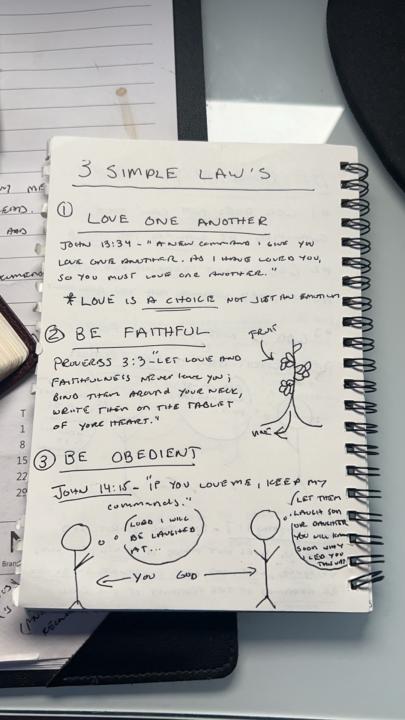 3 SIMPLE LAW'S
① LOVE ONE ANOTHER
JOHN 13:34 - "A NEW COMMAND I GIVE YOU
LOVE ONE ANOTHER. AS I HAVE LOVED YOU,
SO YOU MUST LOVE ONE ANOTHER."
* LOVE IS A CHOICE NOT JUST AN EMOTION
② BE FAITHFUL
FRUIT
PROVERBS 3:3 - "LET LOVE AND
FAITHFULNESS NEVER leave YOU;
BIND THEM AROUND YOUR NECK,
WRITE THEM ON THE TABLET
OF YORE HEART."
VINE
③ BE OBEDIENT
JOHN 14:15 - "IF YOU LOVE ME, KEEP MY
commands."
LORD I WILL
BE LAUGHED
AT...
LET THEM
LAUGH SON
OUR DAUGHTER
YOU WILL KNOW
SOON WHY
I LED YOU
YOU GOD
ME
AND
T
1
8
15
22
29
N